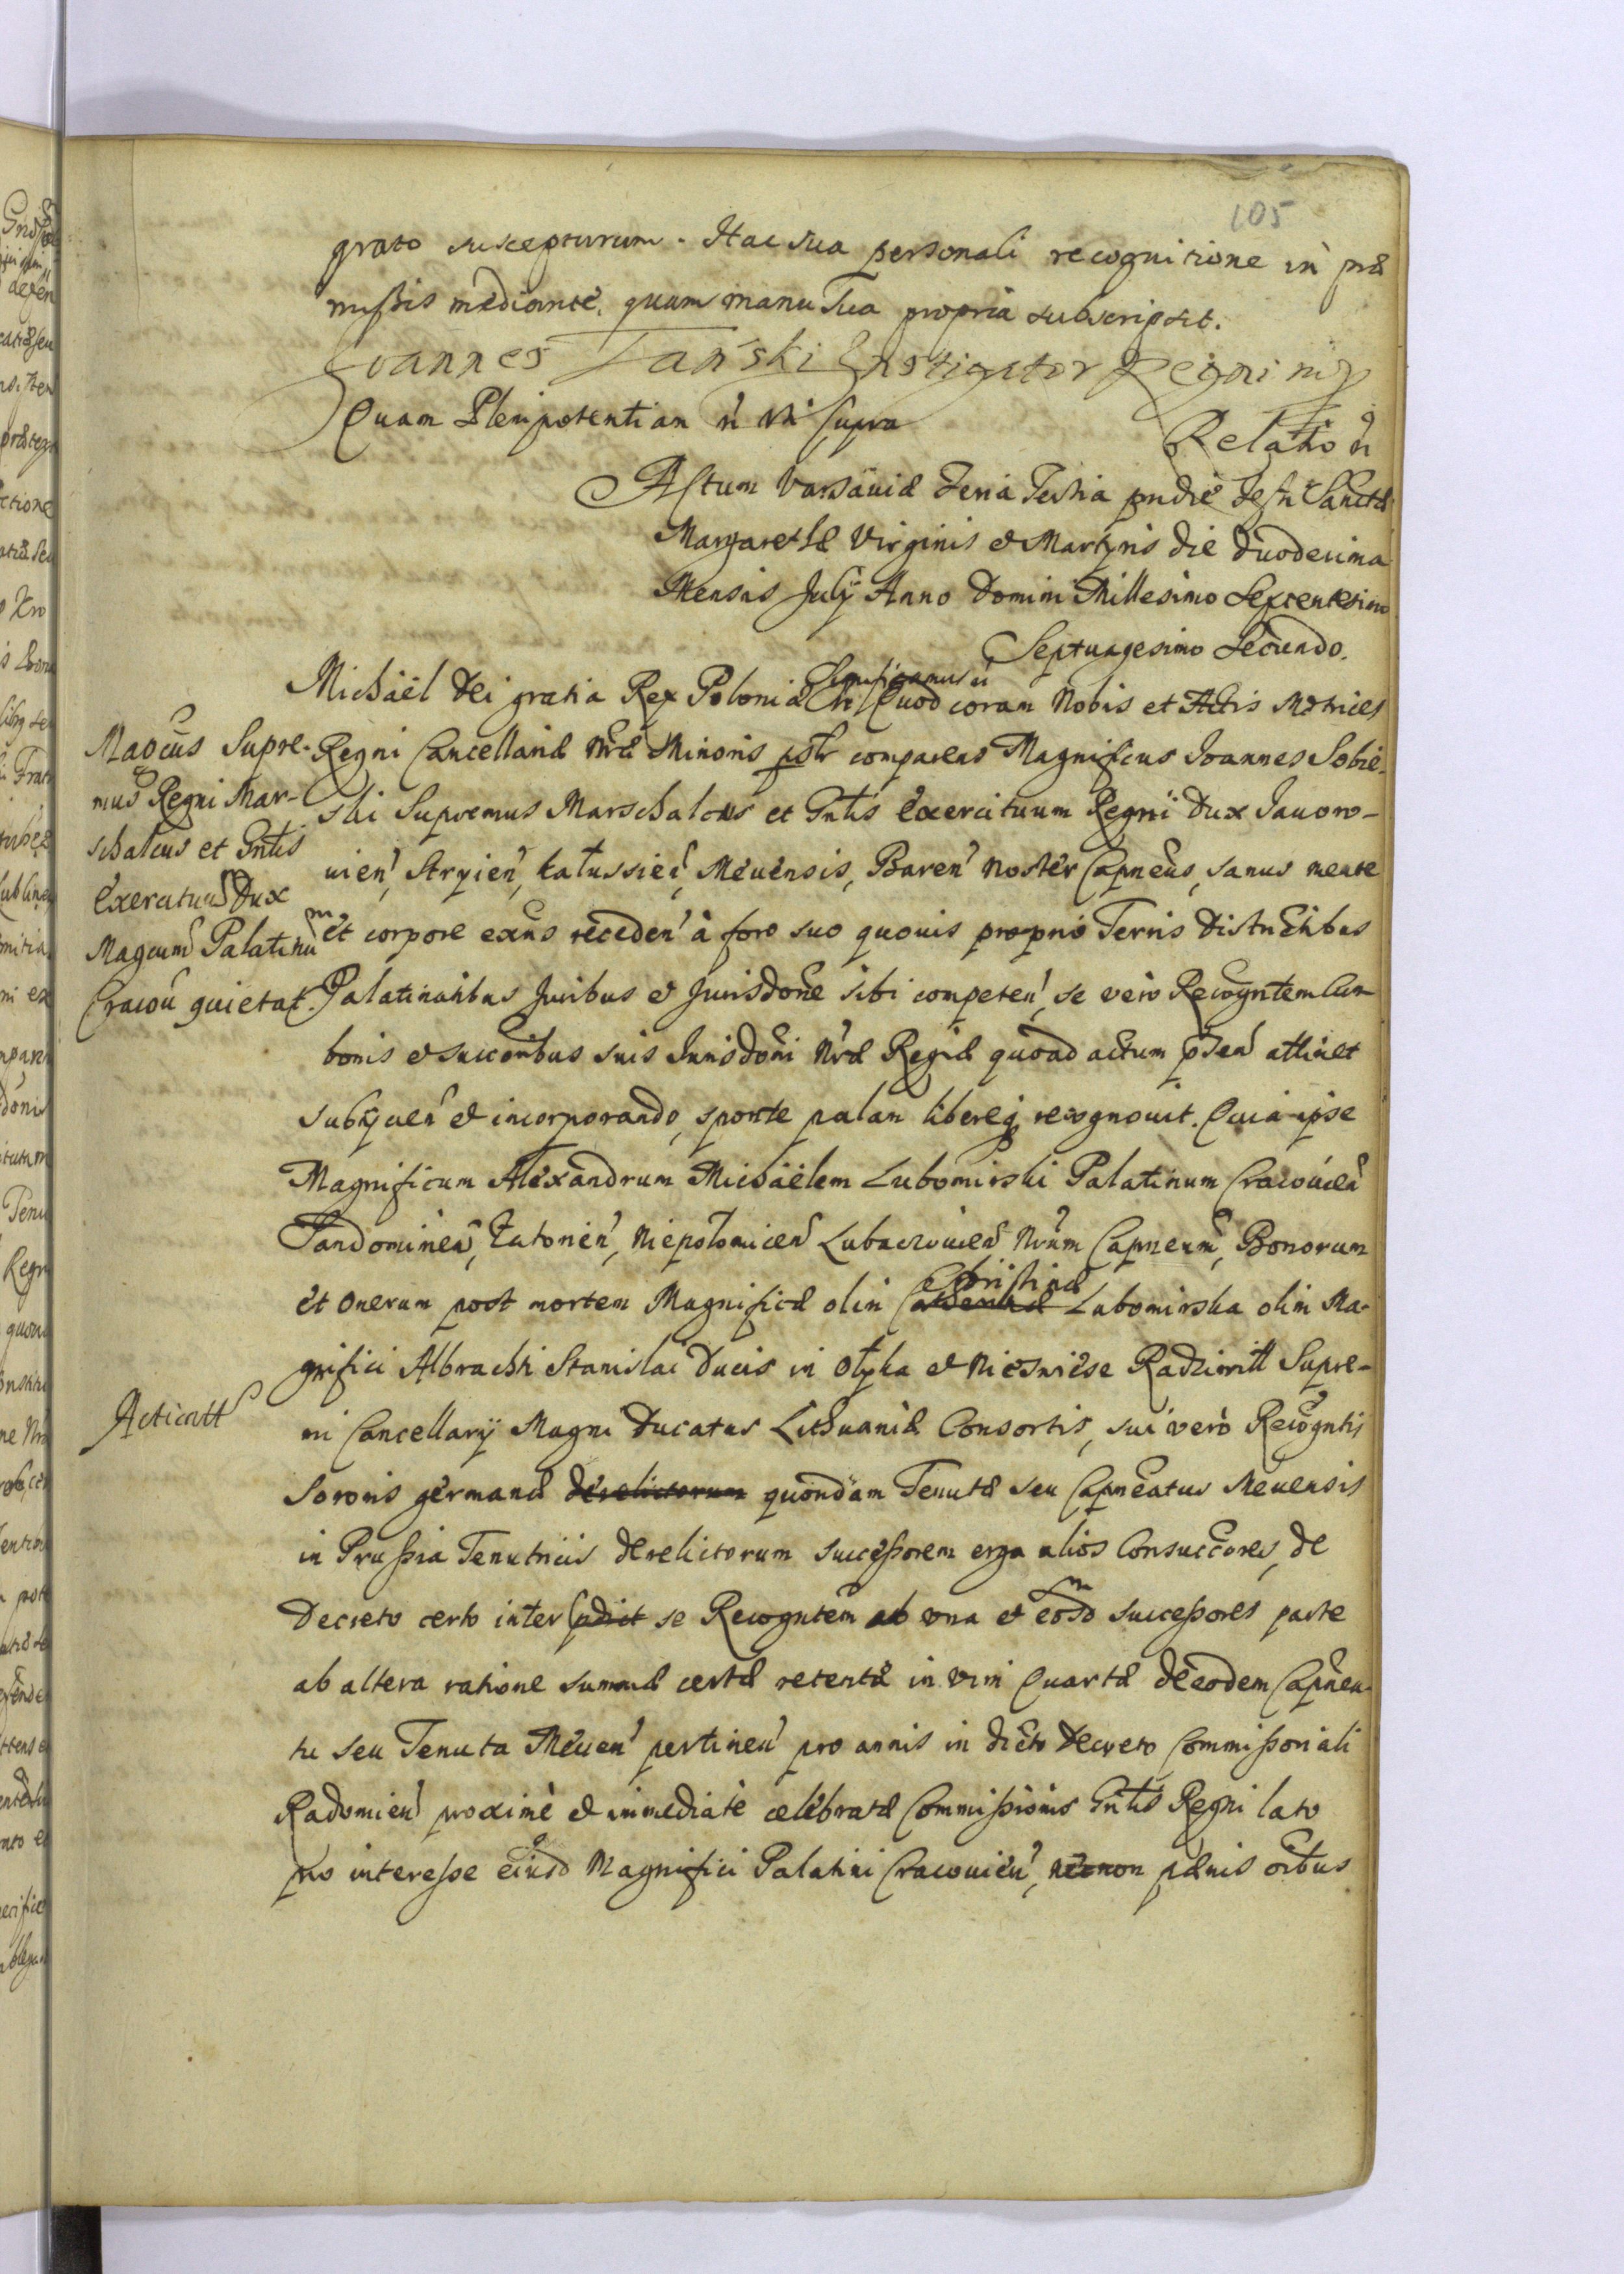 105
grato suscepturum. Hac sua personali recognitione in præ
missis mediante, quam manu sua propria subscripsit.
Joannes Tański Instigator Regni mp
Quam Plenipotentiam ñ uti supra
Relatio ñ
Actum Varsaviæ Feria Tertia pridie Festi Sanctæ
Margarethæ Virginis et Martyris die duodecima
Mensis Julij Anno Domini Millesimo Septentesimo
Septuagesimo Secundo.
Significamus ñ
Michäel Dei gratia Rex Poloniæ Quod coram Nobis et Actis Metrices
Regni Cancellariæ Nræ Minoris pstr comparens Magnificus Joannes Sobie-
ski Supremus Marschalcus et Gntis exercituum Regni Dux Javoro-
uien, Stryien, Kałussien, Meuensis, Baren Noster Capneus, sanus mente
et corpore exns receden à foro suo quouis proprio Terris Districtibus
Palatinatibus Juribus et Jurisdone sibi competen, se vero Recogntem cum
bonis et succoribus suis Jurisdoni Nræ Regiæ quoad actum pñtem attinet
subijcien et incorporando, sponte palam libereq recognouit. Quia ipse
Magnificum Alexandrum Michäelem Lubomirski Palatinum Cracouien
Sandomirien, Zatorien, Niepołomicen Lubaczouien, Nrum Capneum, Bonorum
Christinæ
et onerum post mortem Magnificæ olim Lubomirska olim Ma-
gnifici Albrachti Stanislai Ducis in Ołyka et Nieswiese Radziwiłł Supre-
mi Cancellarij Magni Ducatus Lithuaniæ Consortis, sui verò Recogntis
Sororis germanæ derelictorum quondam Tenutæ seu Capneatus Meuensis
in Prussia Tenutricis derelictorum successorem erga alios Consuccores, de
Decreto certo inter se Recogntem ab una et eosd successores parte
ab altera ratione summæ certæ retentæ in vim Quartæ de eodem Capnea-
tu seu Tenuta Meuen pertinen pro annis in dicto Decreto Commissoriali
Radomien proximè et immediatè celebratæ Commissionis Gntis Regni lato
pro interesse eiusd Magnifici Palatini Cracouien, necnon pænis oibus
Magcus Supre-
mus Regni Mar-
schalcus et Gntis
exercituum Dux
Magcum Palatinum
Cracou quietat.
Acticatt